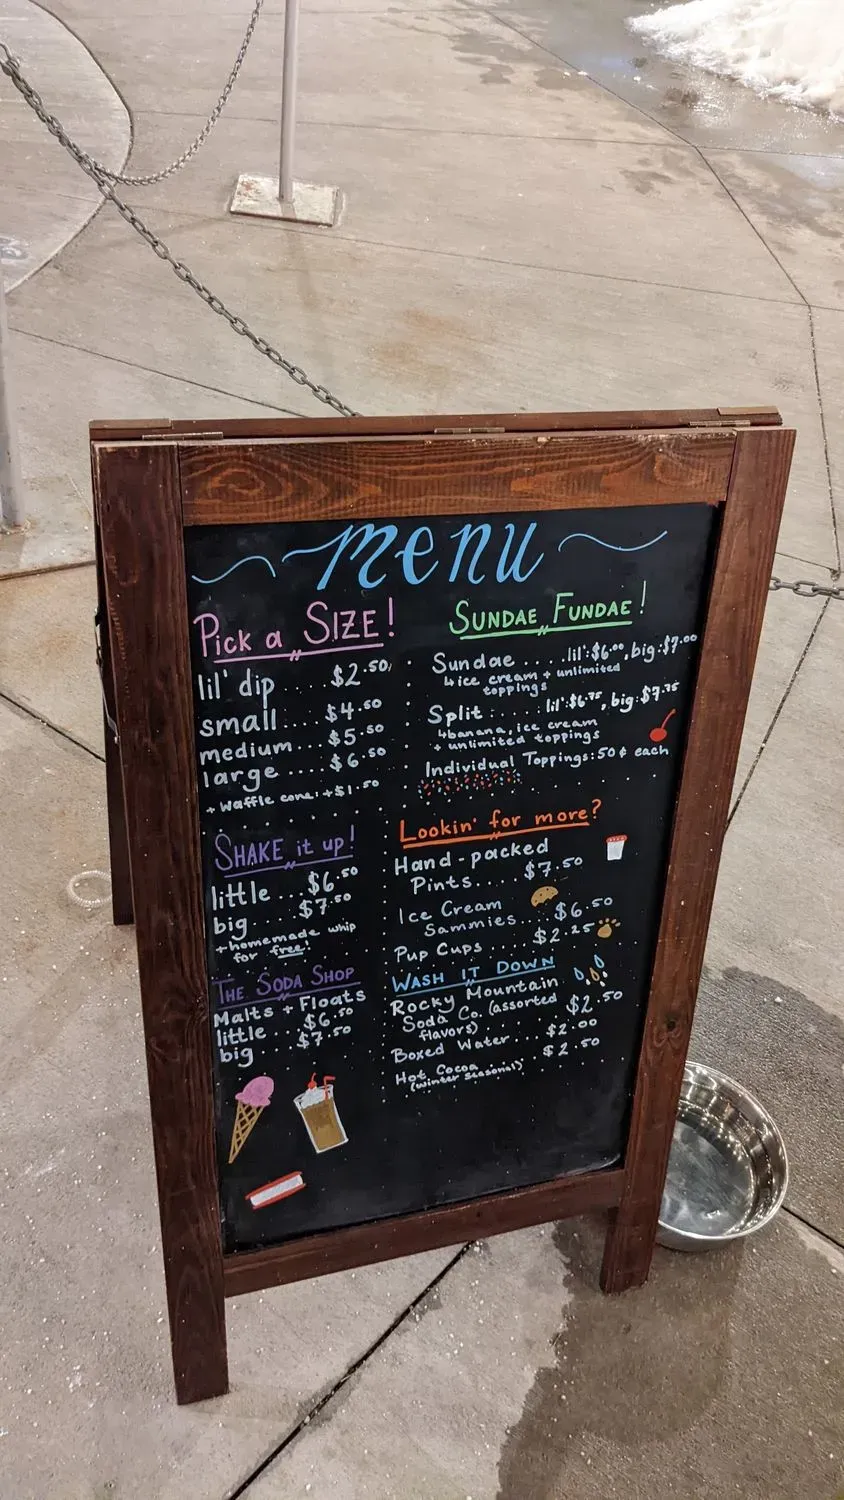 menu
Pick a SIZE!
lil' dip .... $2.50
small .... $4.50
medium .... $5.50
large .... $6.50
+ Waffle cone: +$1.50
SHAKE it up!
little .... $6.50
big .... $7.50
+ homemade whip
for free!
THE SODA SHOP
Malts + Floats
little .... $6.50
big .... $7.50
SUNDAE FUNDAE!
Sundae .... lil': $6.00, big: $7.00
↳ ice cream + unlimited
toppings
Split .... lil': $6.75, big: $7.75
↳ banana, ice cream
+ unlimited toppings
Individual Toppings: 50¢ each
Lookin' for more?
Hand-packed
Pints .... $7.50
Ice Cream
Sammies .... $6.50
Pup Cups .... $2.25
WASH IT DOWN
Rocky Mountain
Soda Co. (assorted
flavors) .... $2.50
Boxed Water .... $2.00
Hot Cocoa .... $2.50
(winter seasonal)